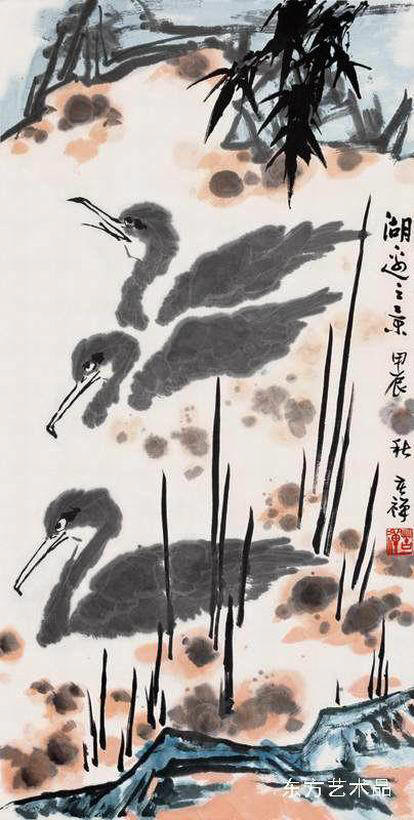 湖邊之景 甲辰 秋 禅
东方艺术品